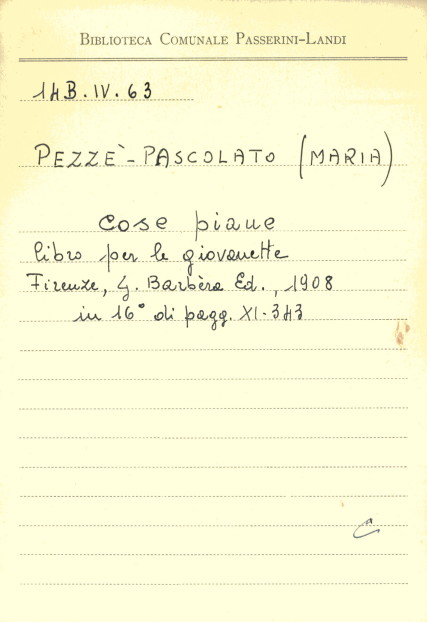 BIBLIOTECA COMUNALE PASSERINI-LANDI
14B.IV.63
PEZZÈ-PASCOLATO (MARIA)
Cose piane
libro per le giovanette
Firenze, G. Barbèra Ed., 1908
in 16° di pagg. XI-343
C